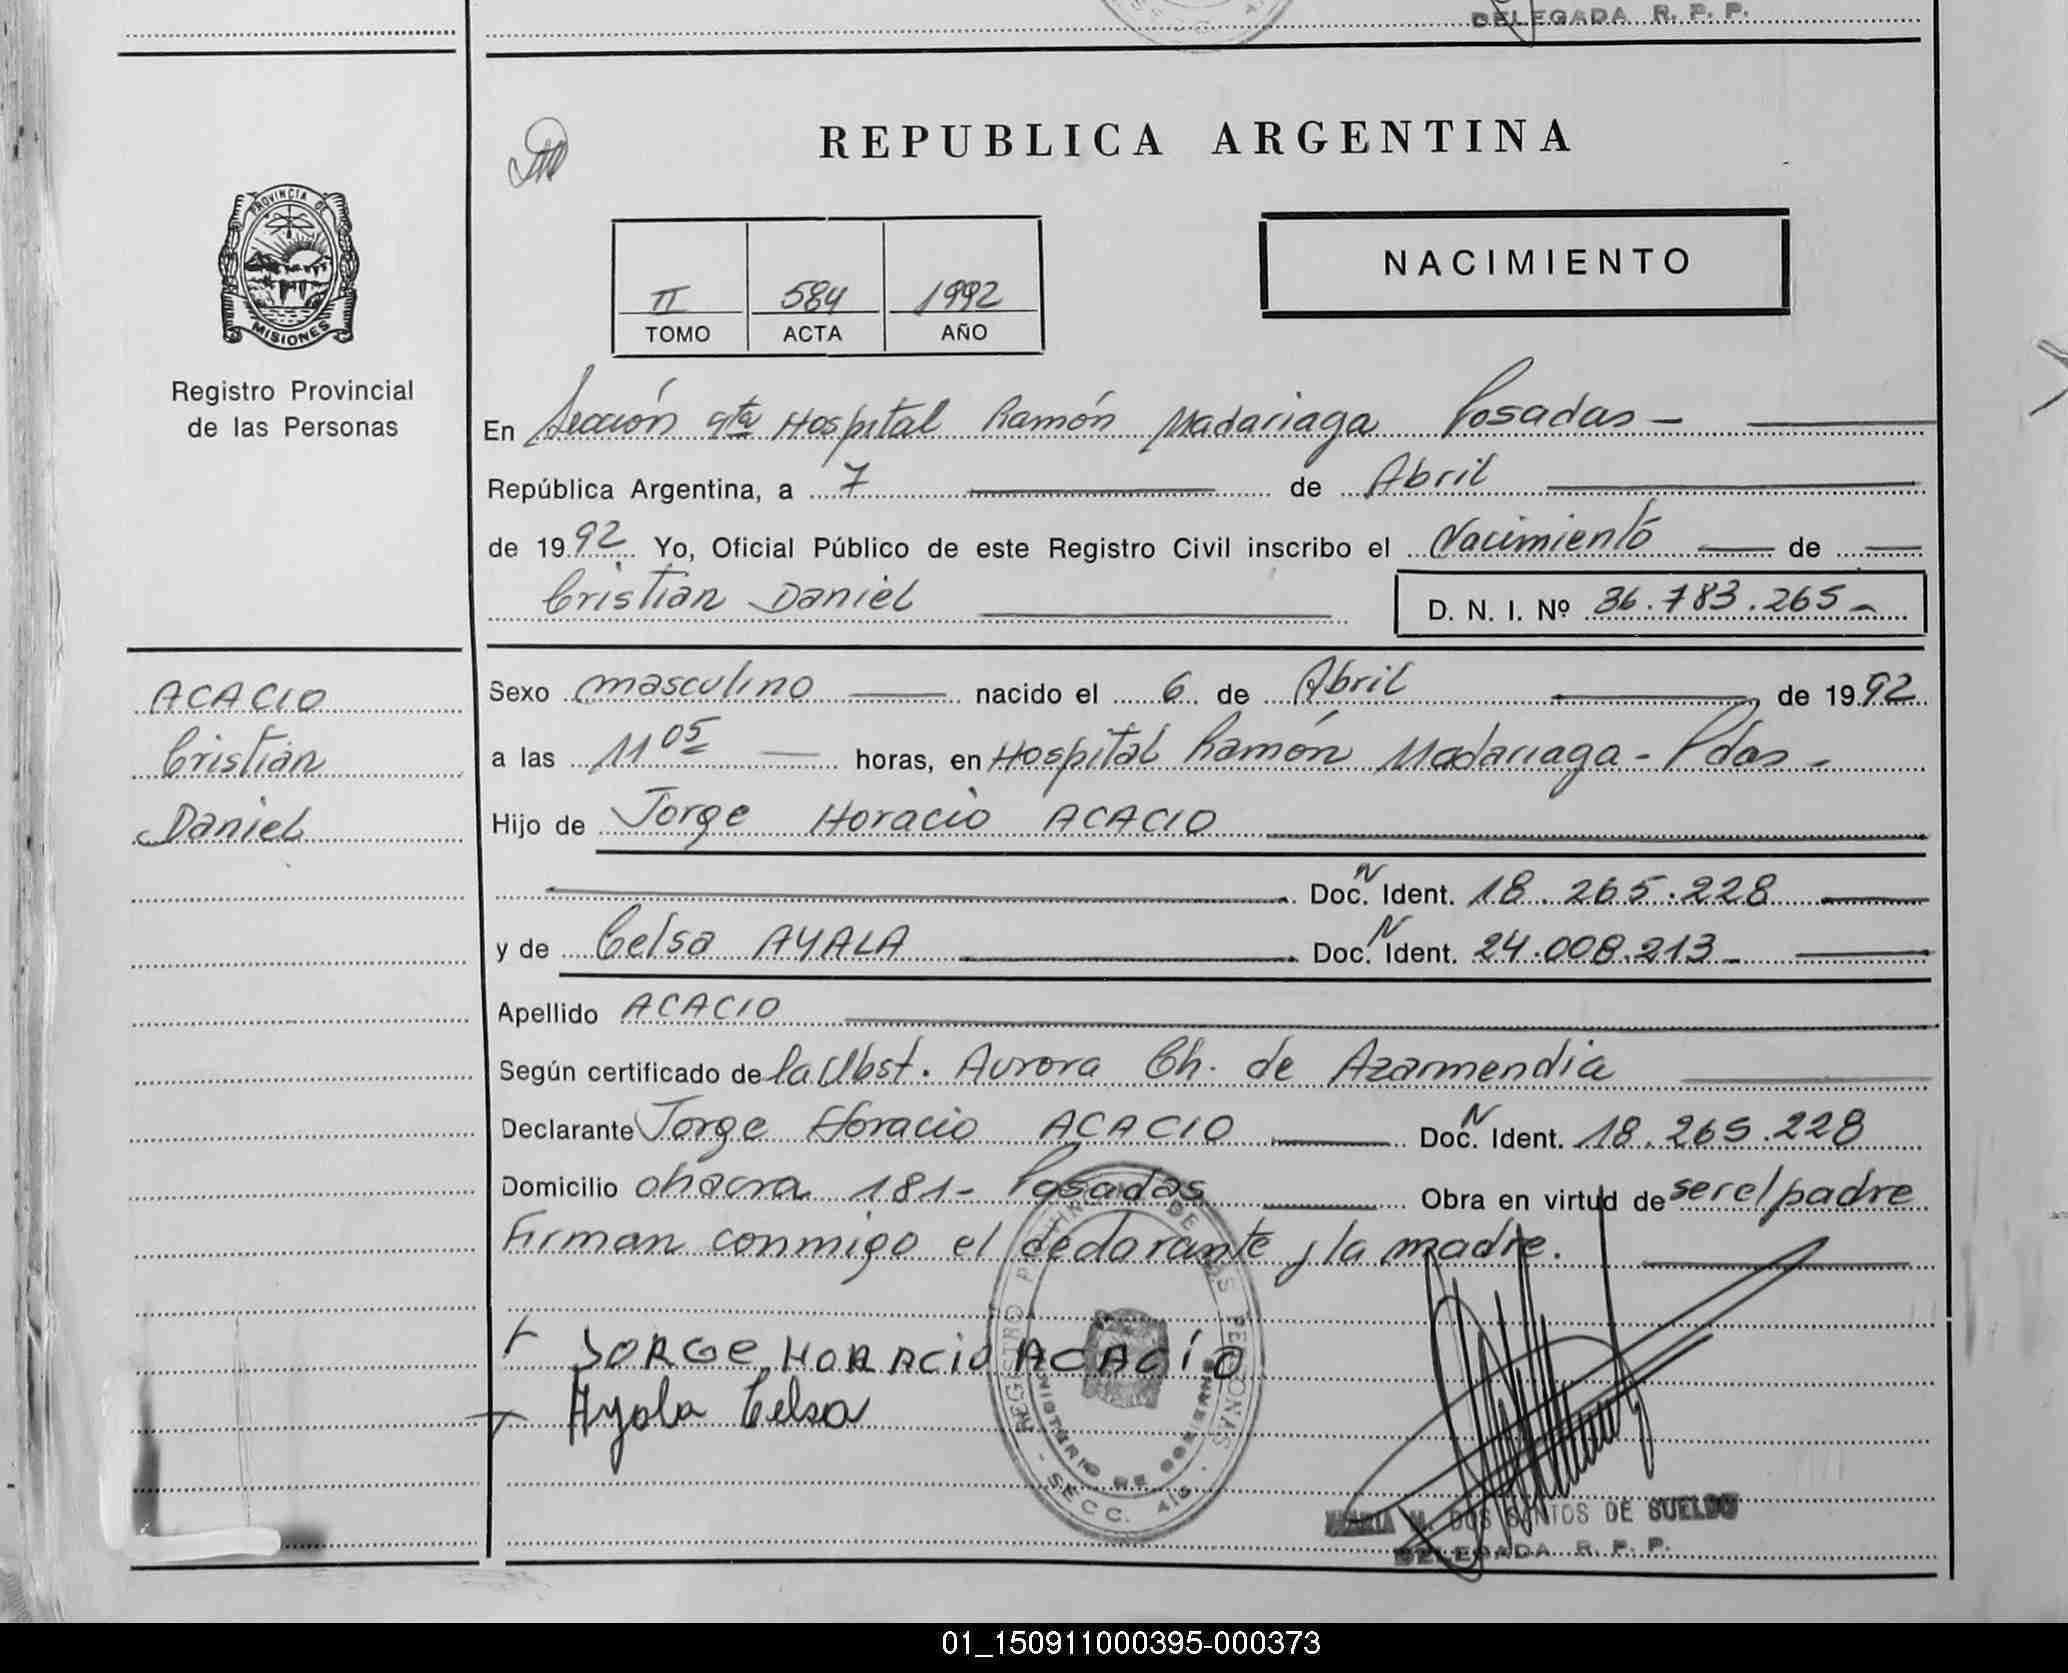 DELEGADA R. P. P.
REPUBLICA ARGENTINA
PROVINCIA DE
MISIONES
Registro Provincial
de las Personas
II 584 1992
TOMO ACTA AÑO
NACIMIENTO
En Sección 4ta Hospital Ramón Madariaga Posadas -
República Argentina, a 7 de Abril
de 1992 Yo, Oficial Público de este Registro Civil inscribo el Nacimiento de
Cristian Daniel D. N. I. Nº 36.783.265 -
ACACIO
Cristian
Daniel
Sexo masculino nacido el 6 de Abril de 1992
a las 11 05 horas, en Hospital Ramón Madariaga - Pdas -
Hijo de Jorge Horacio ACACIO
Doc. N Ident. 18.265.228
y de Celsa AYALA Doc. N Ident. 24.008.213 -
Apellido ACACIO
Según certificado de la Obst. Aurora Ch. de Azarmendia
Declarante Jorge Horacio ACACIO Doc. N Ident. 18.265.228
Domicilio chacra 181 - Posadas Obra en virtud de ser el padre
Firman conmigo el declarante y la madre.
JORGE HORACIO ACACIO
Ayala Celsa
REGISTRO PROVINCIAL DE LAS PERSONAS
MINISTERIO DE GOBIERNO
- SECC. 4ta. -
MARIA M. DOS SANTOS DE SUELDO
DELEGADA R. P. P.
01_150911000395-000373